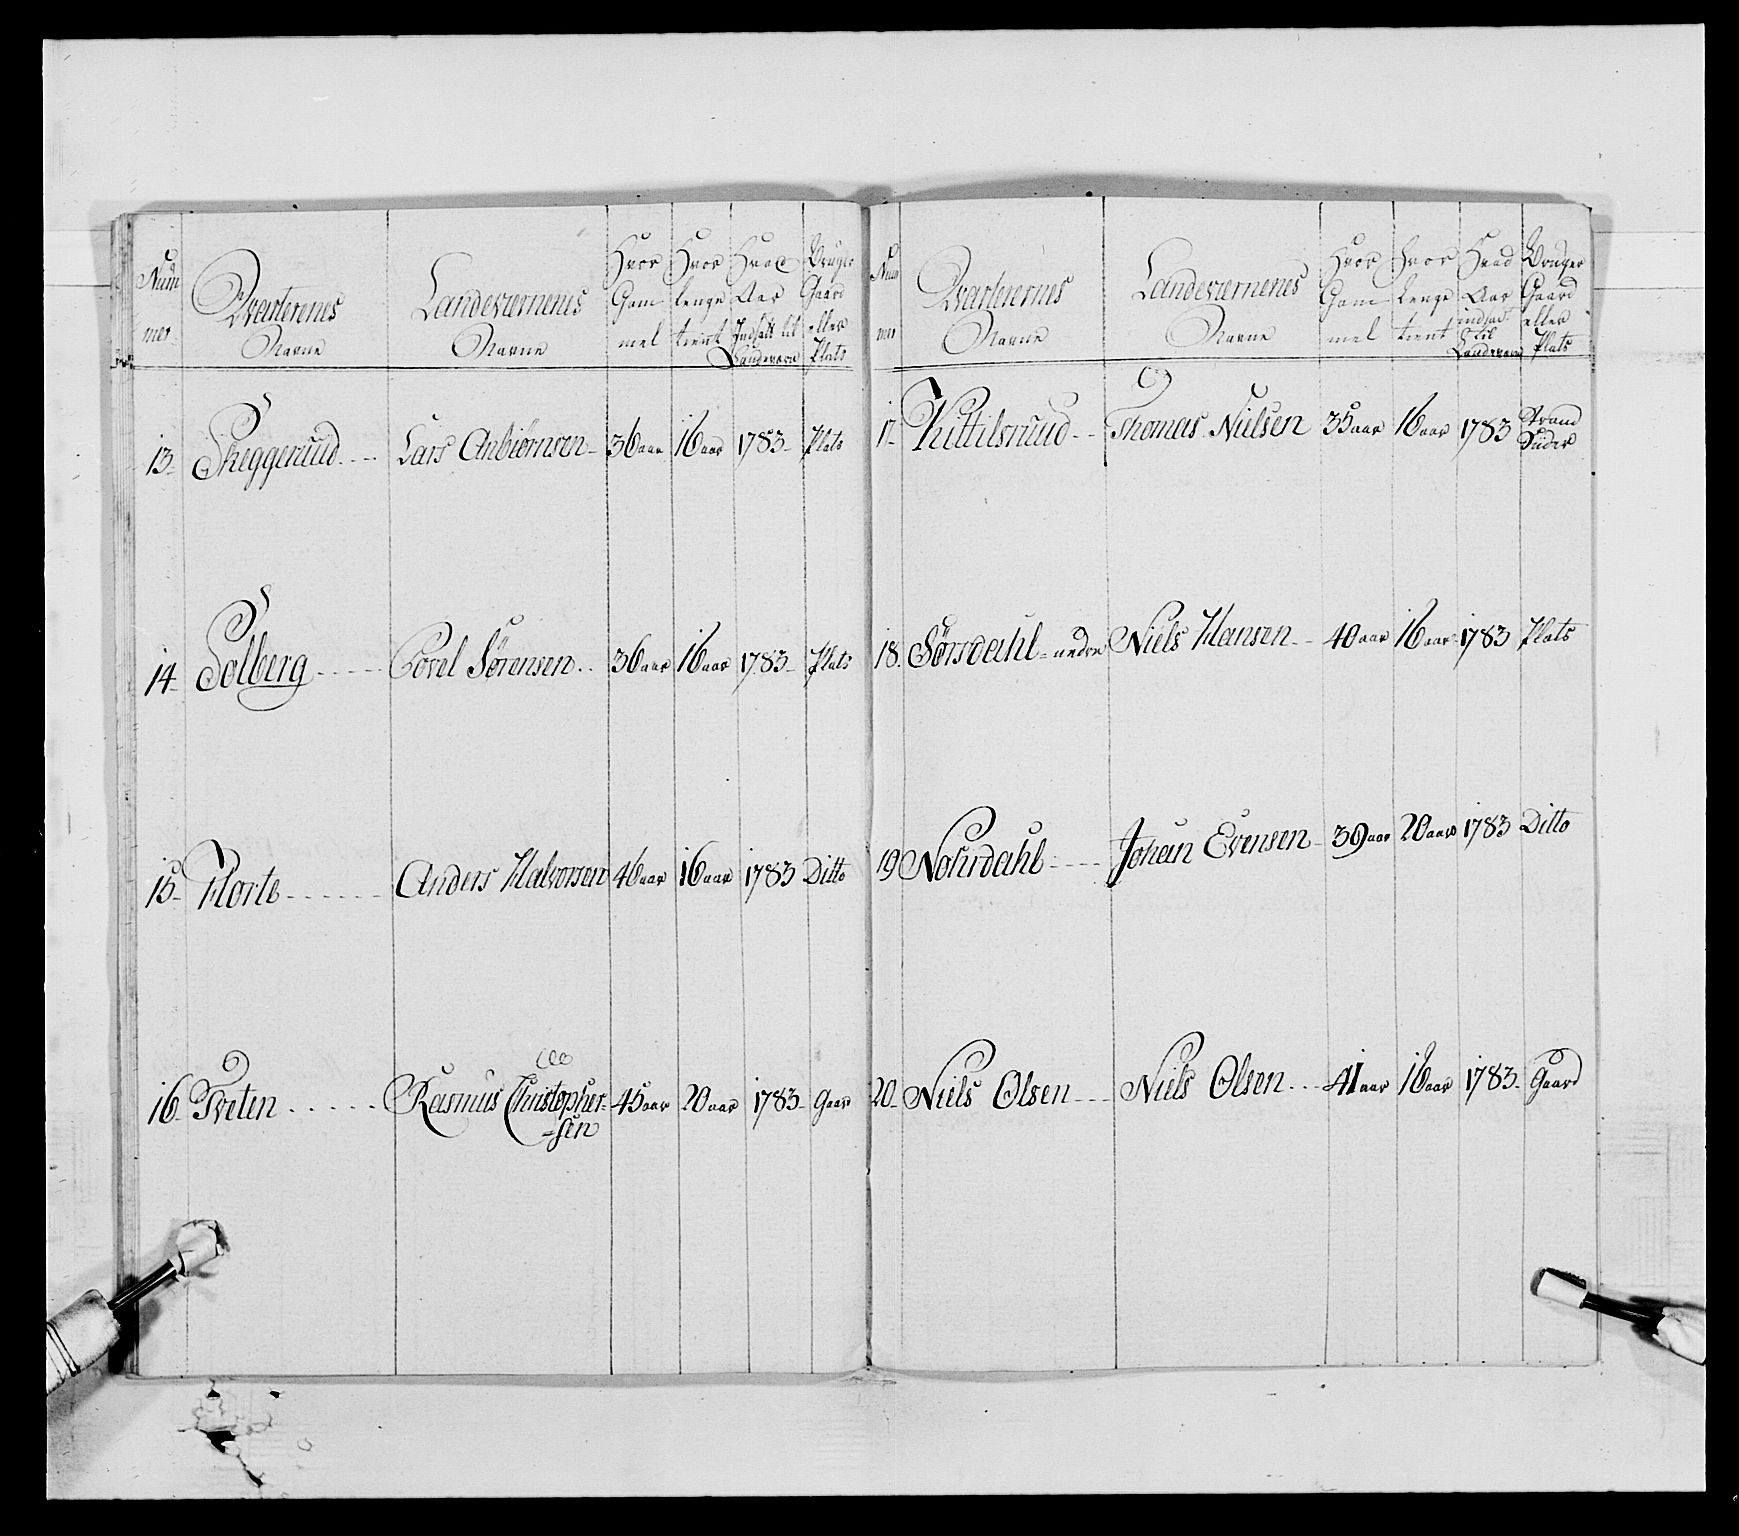 Num
mer
Qvarterenes
Navne
Landeværnenes
Navne
Hvor
Gam
mel
Hvor
lenge
tient
Hvad
Aar
Indsatt til
Landeværn
Bruger
Gaard
eller
Plats
13. Skeggerüüd Lars Anbiörnsen 36 aar 16 aar 1783 Plats
14. Solberg Povel Sørensen 36 aar 16 aar 1783 Plats
15. Horte Anders Halvorsen 46 aar 16 aar 1783 Ditto
16. Tveten Rasmüs Christopher=
=sen 45 aar 20 aar 1783 Gaar
Num
mer
Qvarterernes
Navne
Landeværnenes
Navne
Hvor
Gam
mel
Hvor
lenge
tient
Hvad
Aar
indsat
til
Landeværn
Bruger
Gaard
eller
Plats
17. Kittilsrüüd Thomas Nielsen 35 aar 16 aar 1783 Strand
Sider
18. Sørsdahl nedre Niels Hansen 40 aar 16 aar 1783 Plats
19 Nohrdahl Johan Evensen 39 aar 20 aar 1783 Ditto
20. Niels Olsen Niels Olsen 41 aar 16 aar 1783 Gaard